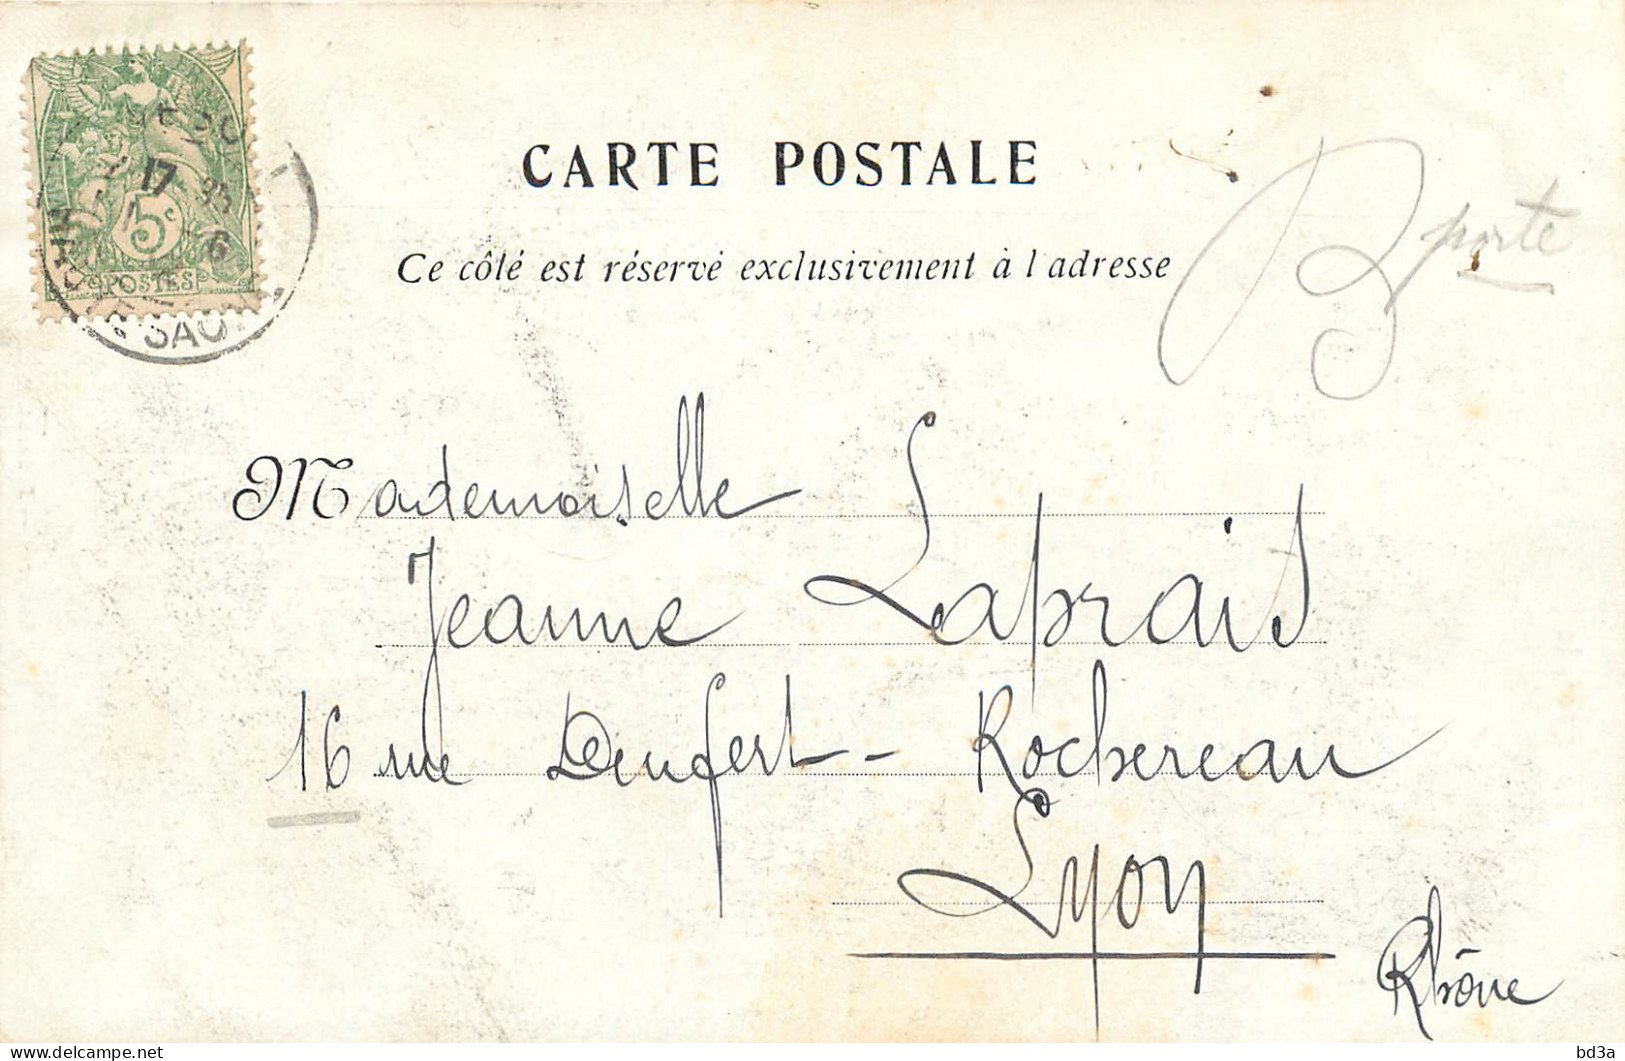 CARTE POSTALE
Ce côté est réservé exclusivement à l'adresse
B porte
17 35
5c
6
POSTES
Mademoiselle
Jeanne Laprait
16 rue Denfert-Rochereau
Lyon
Rhône
delcampe.net
bd3a